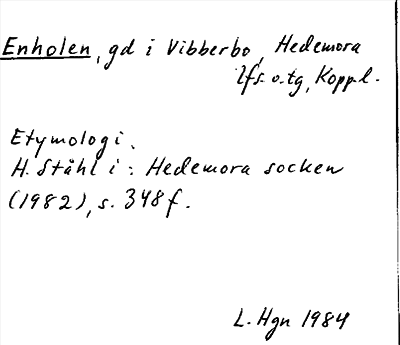 Enholen, gd i Vibberbo, Hedemora
lfs. o. tg, Koppl.
Etymologi.
H. Ståhl i: Hedemora socken
(1982), s. 348 f.
L. Hgn 1984